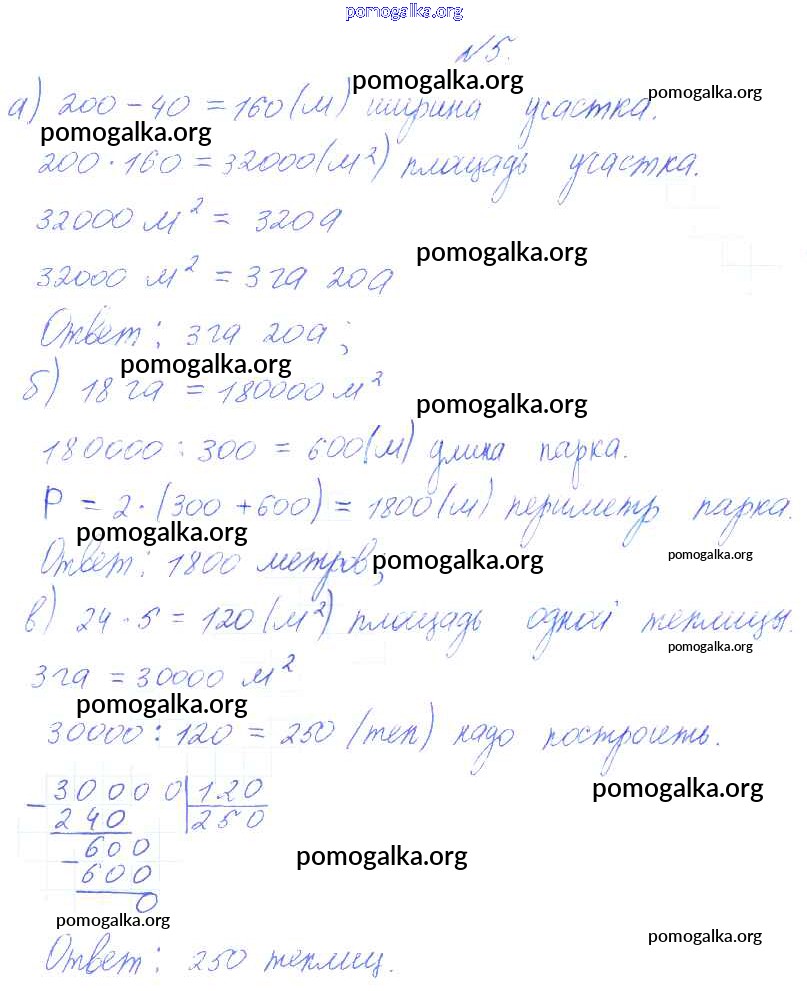 pomogalka.org
№5.
pomogalka.org
pomogalka.org
а) 200 - 40 = 160 (м) ширина участка.
pomogalka.org
200 · 160 = 32000 (м²) площадь участка.
32000 м² = 320а
pomogalka.org
32000 м² = 3 га 20а
Ответ: 3га 20а;
pomogalka.org
б) 18 га = 180000 м²
pomogalka.org
180000 : 300 = 600 (м) длина парка.
P = 2 · (300 + 600) = 1800 (м) периметр парка.
pomogalka.org
Ответ: 1800 метров;
pomogalka.org
pomogalka.org
в) 24 · 5 = 120 (м²) площадь одной теплицы.
pomogalka.org
3 га = 30000 м²
pomogalka.org
30000 : 120 = 250 (теп) надо построить.
- 30000 | 120
pomogalka.org
240 | 250
- 600
pomogalka.org
600
0
pomogalka.org
pomogalka.org
Ответ: 250 теплиц.